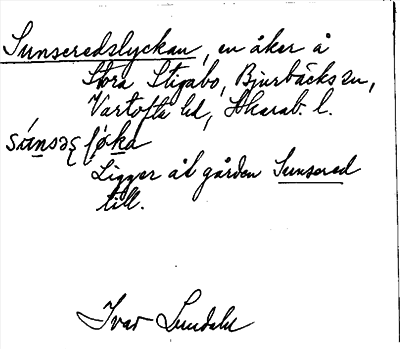 Sunseredslyckan, en åker å
Stora Stigabo, Bjurbäcks sn,
Vartofta hd, Skarab. l.
Ligger åt gården Sunsered
till.
Ivar Lundahl